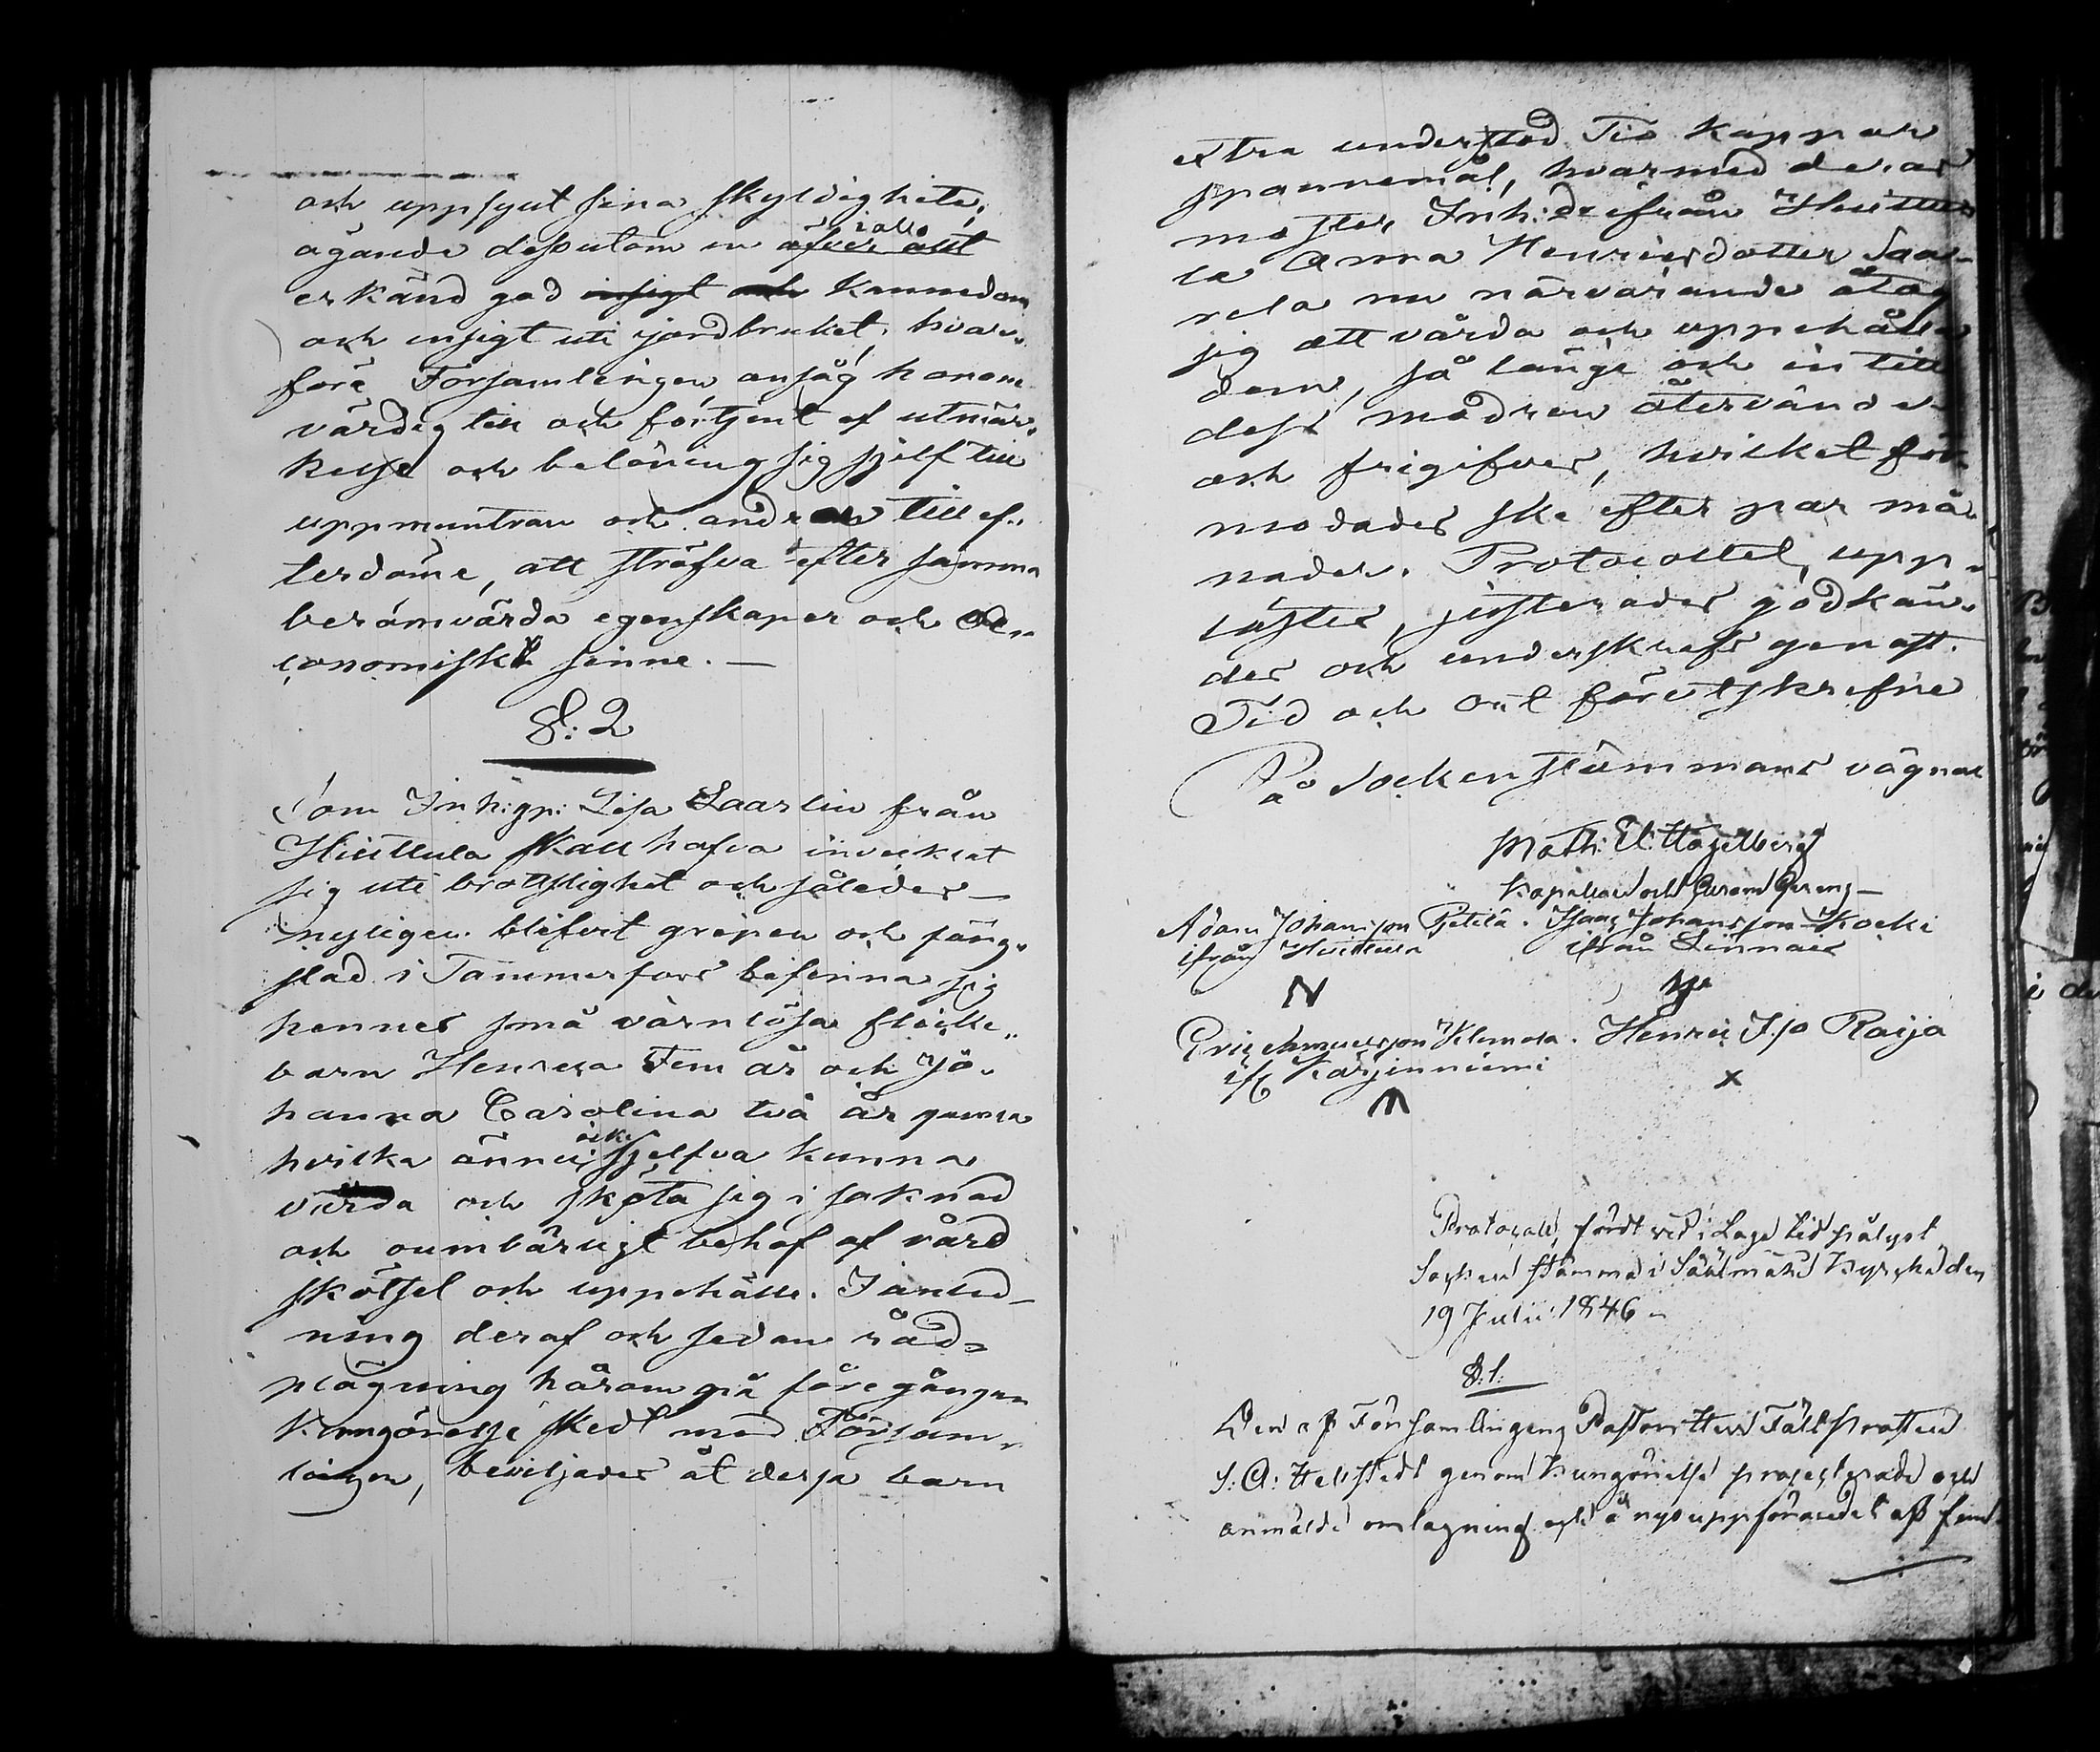 och uppfylt sina skyldigheter,
ägande dessutom en i allo
erkänd god kännedom
och insigt uti jordbruket, hvar„
före Församlingen ansåg honom
värdig till och förtjent af utmär„
kelse och belöning sig sjelf till
uppmuntran och androm till ef„
terdöme, att sträfva efter samma
berömvärda egenskaper och oe„
conomiskt sinne. —
§: 2
Som Inh:gn: Lisa Saarlin från
Huittula skall hafva invecklat
sig uti brottslighet och således —
nyligen blifvit gripen och fäng„
slad i Tammerfors befinna sig
hennes små värnlösa flicke„
barn Henrica Fem år och Jo„
hanna Carolina två år gamla
hvilka ännu icke sjelfva kunna
vårda och sköta sig i saknad
och oumbärligt behof af vård
skötsel och uppehälle. I anled„
ning deraf och sedan råd„
plägning härom på föregången
kungörelse skedt med Försam„
lingen, beviljades åt dessa barn
extra understöd Tio kappar
spannemål, hvarmed deras
moster, Inh: ifrån Huittu„
la Anna Henricsdotter Saa„
rela nu närvarande åtog
sig att vårda och uppehålla
dem, så länge och in till
dess modren återvänder
och frigifves, hvilket för„
modades ske efter par må„
nader. Protocollet, upp„
lästes, justerades godkän„
des och underskrefs genast.
Tid och ort föreskrefne
På Sockenstämmans vägnar
Math: El: Hagelberg
Kapellan och
Adam Johansson Pietilä. Isaac Johansson Kocki
ifrån Huittula ifrån Linnais
N
Eric Klemola. Henric J.so Raija
ifr Kärjenniemi x
M
Protocoll, fördt vid i Laga tid pålyst
Socken Stämma i Säälmäks Kyrcka den
19 Julii 1846 —
§: 1.
Den af Församlingens Pastor Herr Fältprosten
S: A: Hellstedt genom kungörelse projecterade och
anmälde omlagning och å nyo uppförandet af fem